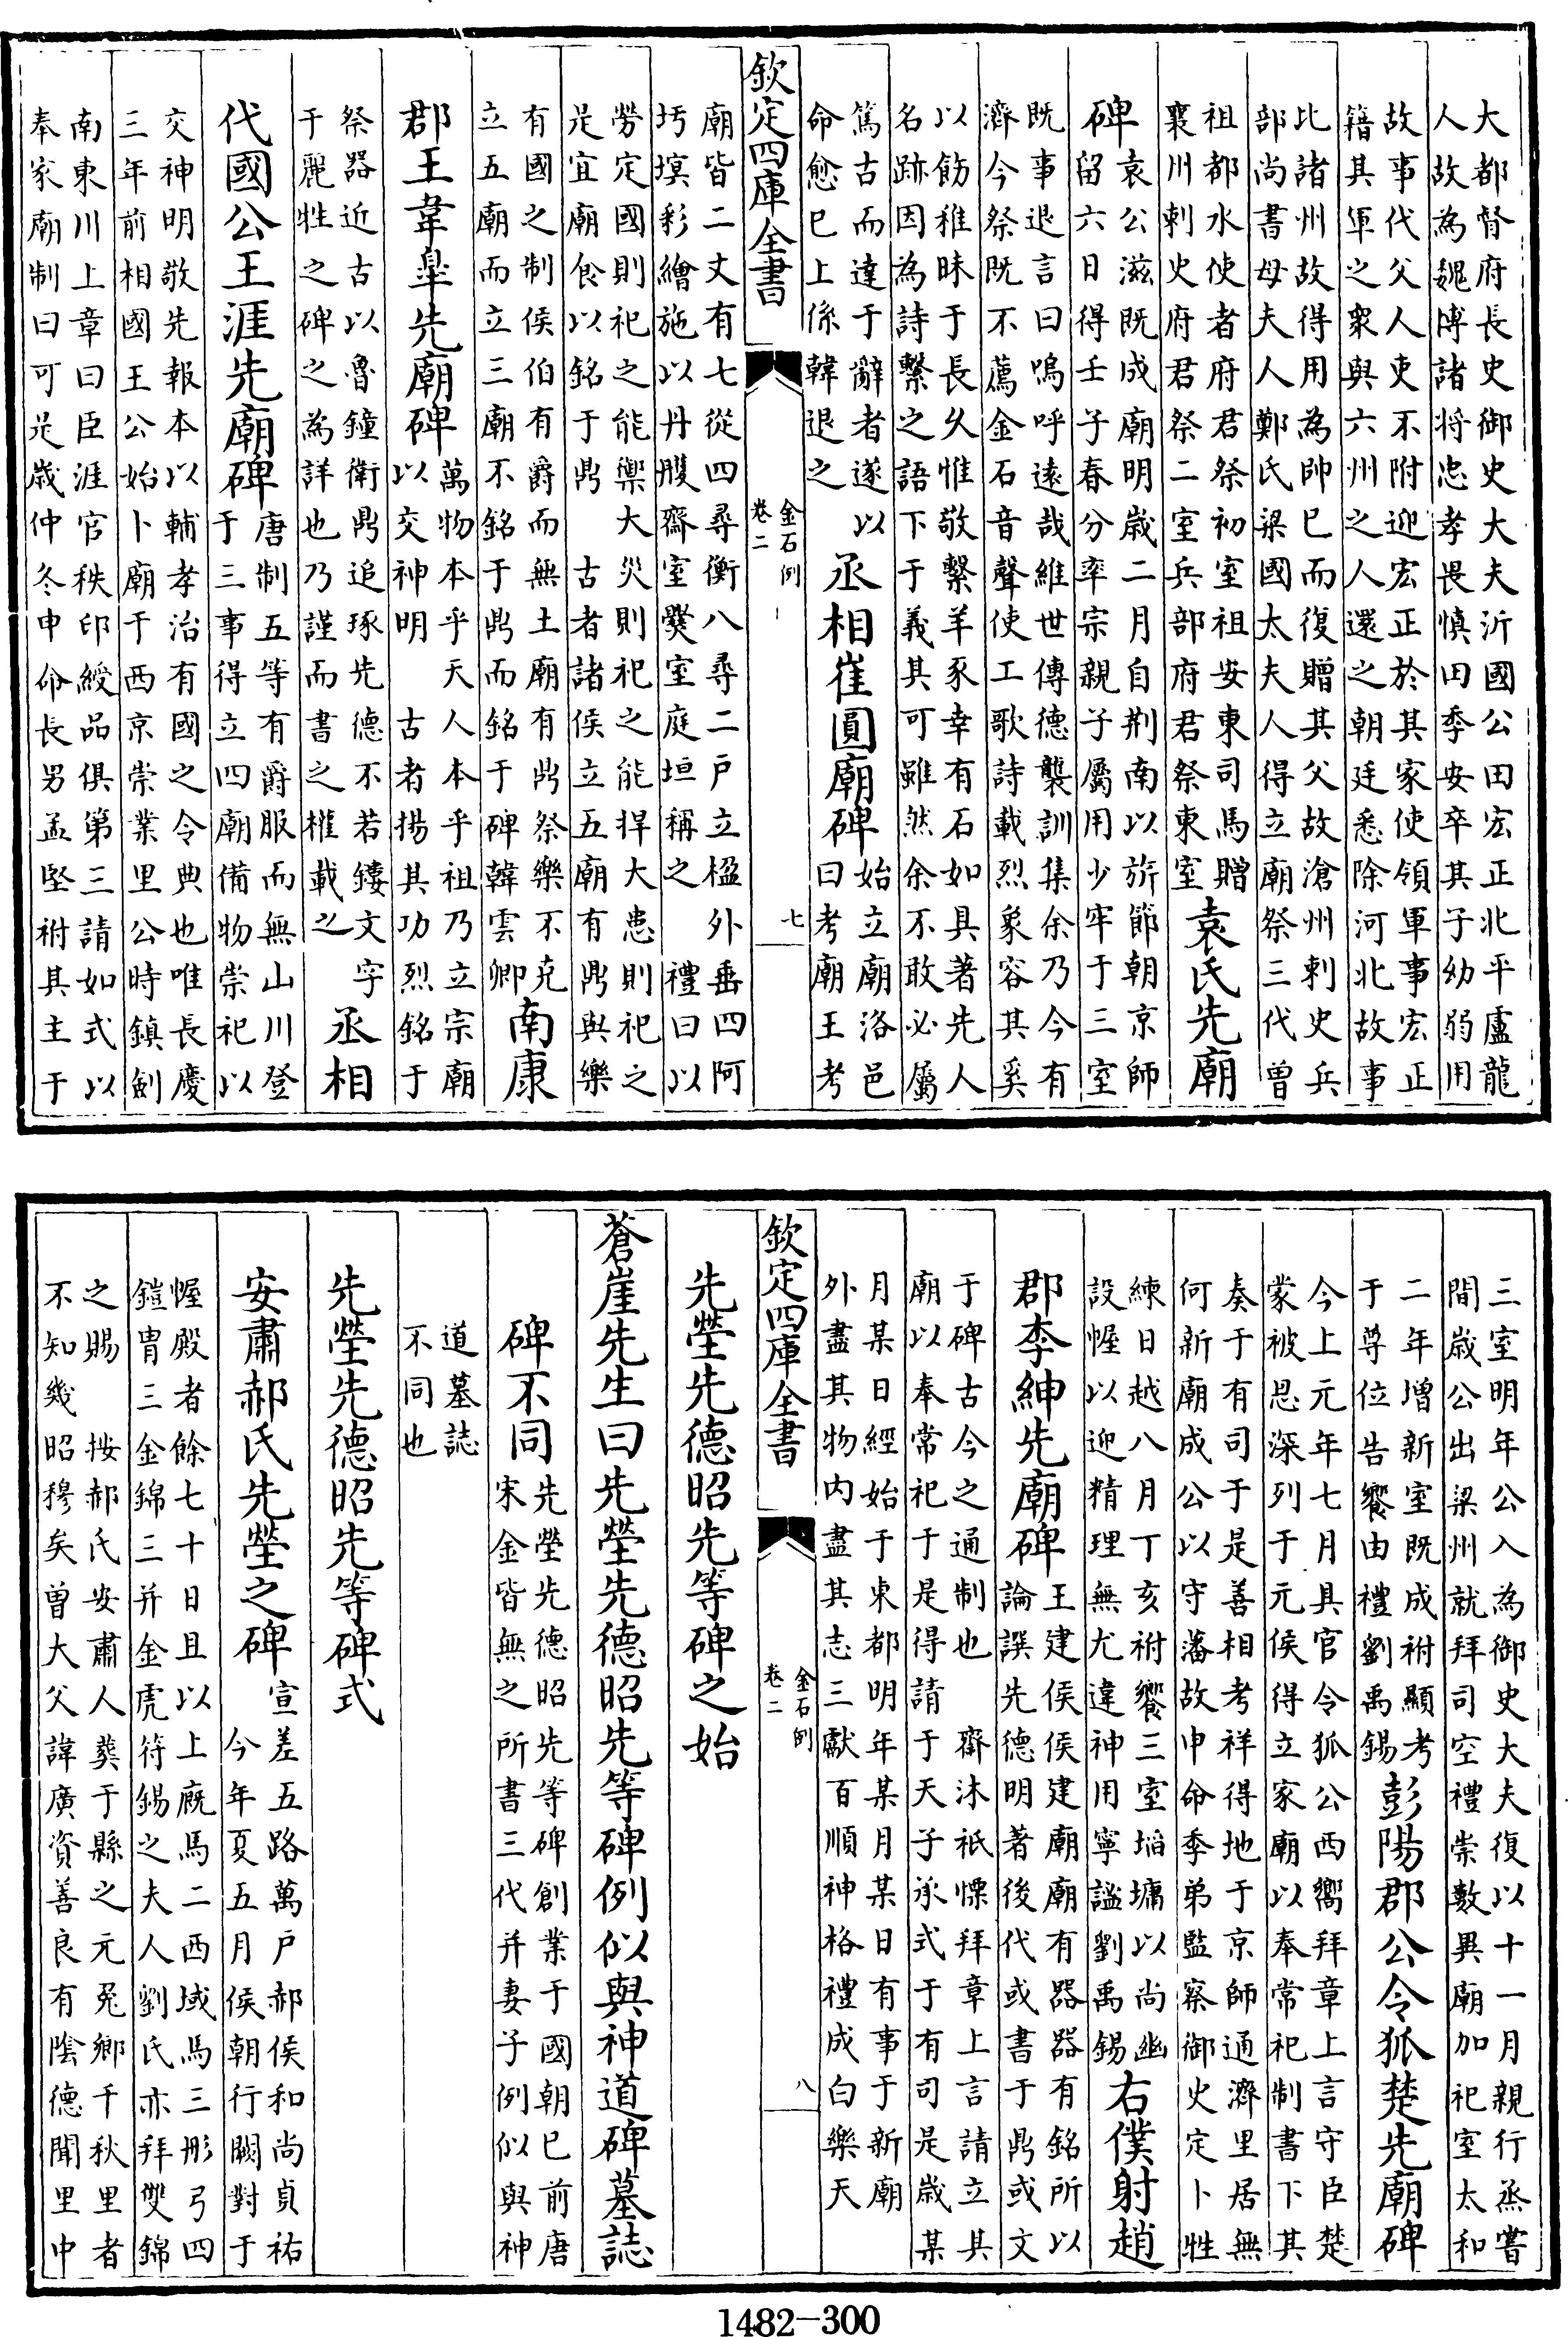 大都督府長史御史大夫沂國公田宏正北平盧龍
人故為魏博諸將忠孝畏慎田季安卒其子幼弱用
故事代父人吏不附迎宏正於其家使領軍事宏正
籍其軍之衆與六州之人還之朝廷悉除河北故事
比諸州故得用為帥巳而復贈其父故滄州刺史兵
部尚書母夫人鄭氏梁國太夫人得立廟祭三代曾
祖都水使者府君祭初室祖安東司馬贈
襄川刺史府君祭二室兵部府君祭東室
袁氏先廟
碑
袁公滋既成廟明歳二月自荆南以旂節朝京師
留六日得壬子春分率宗親子屬用少牢于三室
既事退言曰嗚呼遠哉維世傳德襲訓集余乃今有
濟今祭既不薦金石音聲使工歌詩載烈象容其奚
以飭稚昧于長久惟敬繫羊豕幸有石如具著先人
名跡因為詩繫之語下于義其可雖然余不敢必屬
篤古而達于辭者遂以
命愈巳上係韓退之
丞相崔圓廟碑
始立廟洛邑
曰考廟王考
欽定四庫全書
金石例
卷二
七
廟皆二丈有七從四尋衡八尋二戶立楹外垂四阿
圬塓彩繪施以丹雘齋室爨室庭垣稱之　禮曰以
勞定國則祀之能禦大災則祀之能捍大患則祀之
是宜廟食以銘于鼎　古者諸侯立五廟有鼎與樂
有國之制侯伯有爵而無土廟有鼎祭樂不克
立五廟而立三廟不銘于鼎而銘于碑韓雲卿
南康
郡王韋臯先廟碑
萬物本乎天人本乎祖乃立宗廟
以交神明　古者揚其功烈銘于
祭器近古以魯鐘衛鼎追琢先德不若鏤文字
于麗牲之碑之為詳也乃謹而書之權載之
丞相
代國公王涯先廟碑
唐制五等有爵服而無山川登
于三事得立四廟備物崇祀以
交神明敬先報本以輔孝治有國之令典也唯長慶
三年前相國王公始卜廟于西京崇業里公時鎮劍
南東川上章曰臣涯官秩印綬品俱第三請如式以
奉家廟制曰可是歳仲冬申命長男孟堅祔其主于
三室明年公入為御史大夫復以十一月親行烝嘗
間歳公出梁州就拜司空禮崇數異廟加祀室太和
二年增新室既成祔顯考
于尊位告饗由禮劉禹錫
彭陽郡公令狐楚先廟碑
今上元年七月具官令狐公西嚮拜章上言守臣楚
蒙被恩深列于元侯得立家廟以奉常祀制書下其
奏于有司于是善相考祥得地于京師通濟里居無
何新廟成公以守藩故申命季弟監察御史定卜牲
練日越八月丁亥祔饗三室埳墉以尚幽
設幄以迎精理無尤違神用寧謐劉禹錫
右僕射趙
郡李紳先廟碑
王建侯侯建廟廟有器器有銘所以
論譔先德明著後代或書于鼎或文
于碑古今之通制也　齋沐祇慄拜章上言請立具
廟以奉常祀于是得請于天子承式于有司是歳某
月某日經始于東都明年某月某日有事于新廟
外盡其物内盡其志三獻百順神格禮成白樂天
欽定四庫全書
金石例
卷二
八
先塋先德昭先等碑之始
蒼崖先生曰先塋先德昭先等碑例似與神道碑墓誌
碑不同
先塋先德昭先等碑創業于國朝巳前唐
宋金皆無之所書三代并妻子例似與神
道墓誌
不同也
先塋先德昭先等碑式
安肅郝氏先塋之碑
宣差五路萬戶郝侯和尚貞祐
今年夏五月侯朝行闕對于
幄殿者餘七十日且以上廐馬二西域馬三彤弓四
鎧冑三金錦三并金虎符錫之夫人劉氏亦拜雙錦
之賜　按郝氏安肅人葬于縣之元兎鄉千秋里者
不知幾昭穆矣曾大父諱廣資善良有陰德聞里中
1482-300